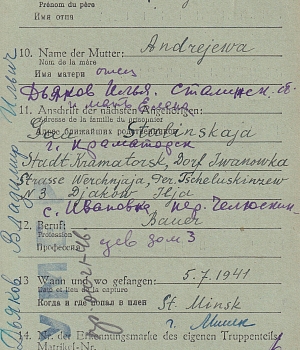 Prénom du père
Имя отца
10. Name der Mutter: Andrejewa
Nom de la mère
Имя матери отец
Дьяков Илья. Сталинск. об
и мать Елена
11. Anschrift der nächsten Angehörigen:
Adresse de la famille du prisonnier
Адрес ближайших родственников
Stalinskaja
г. Краматорск
Stadt Kramatorsk, Dorf Iwanowka
Strasse Werchnjaja, Per. Tscheluskinzew
№ 3 Djakow Ilja
с. Ивановка пер. Челюскин
12. Beruf: Bauer
Profession
Профессия
дом 3
13 Wann und wo gefangen: 5.7.1941
Date et lieu de la capture
Когда и где попал в плен St. Minsk
г. Минск
14. Nr. der Erkennungsmarke des eigenen Truppenteils
Matrikel-Nr.
Дьяков Владимир Ильич